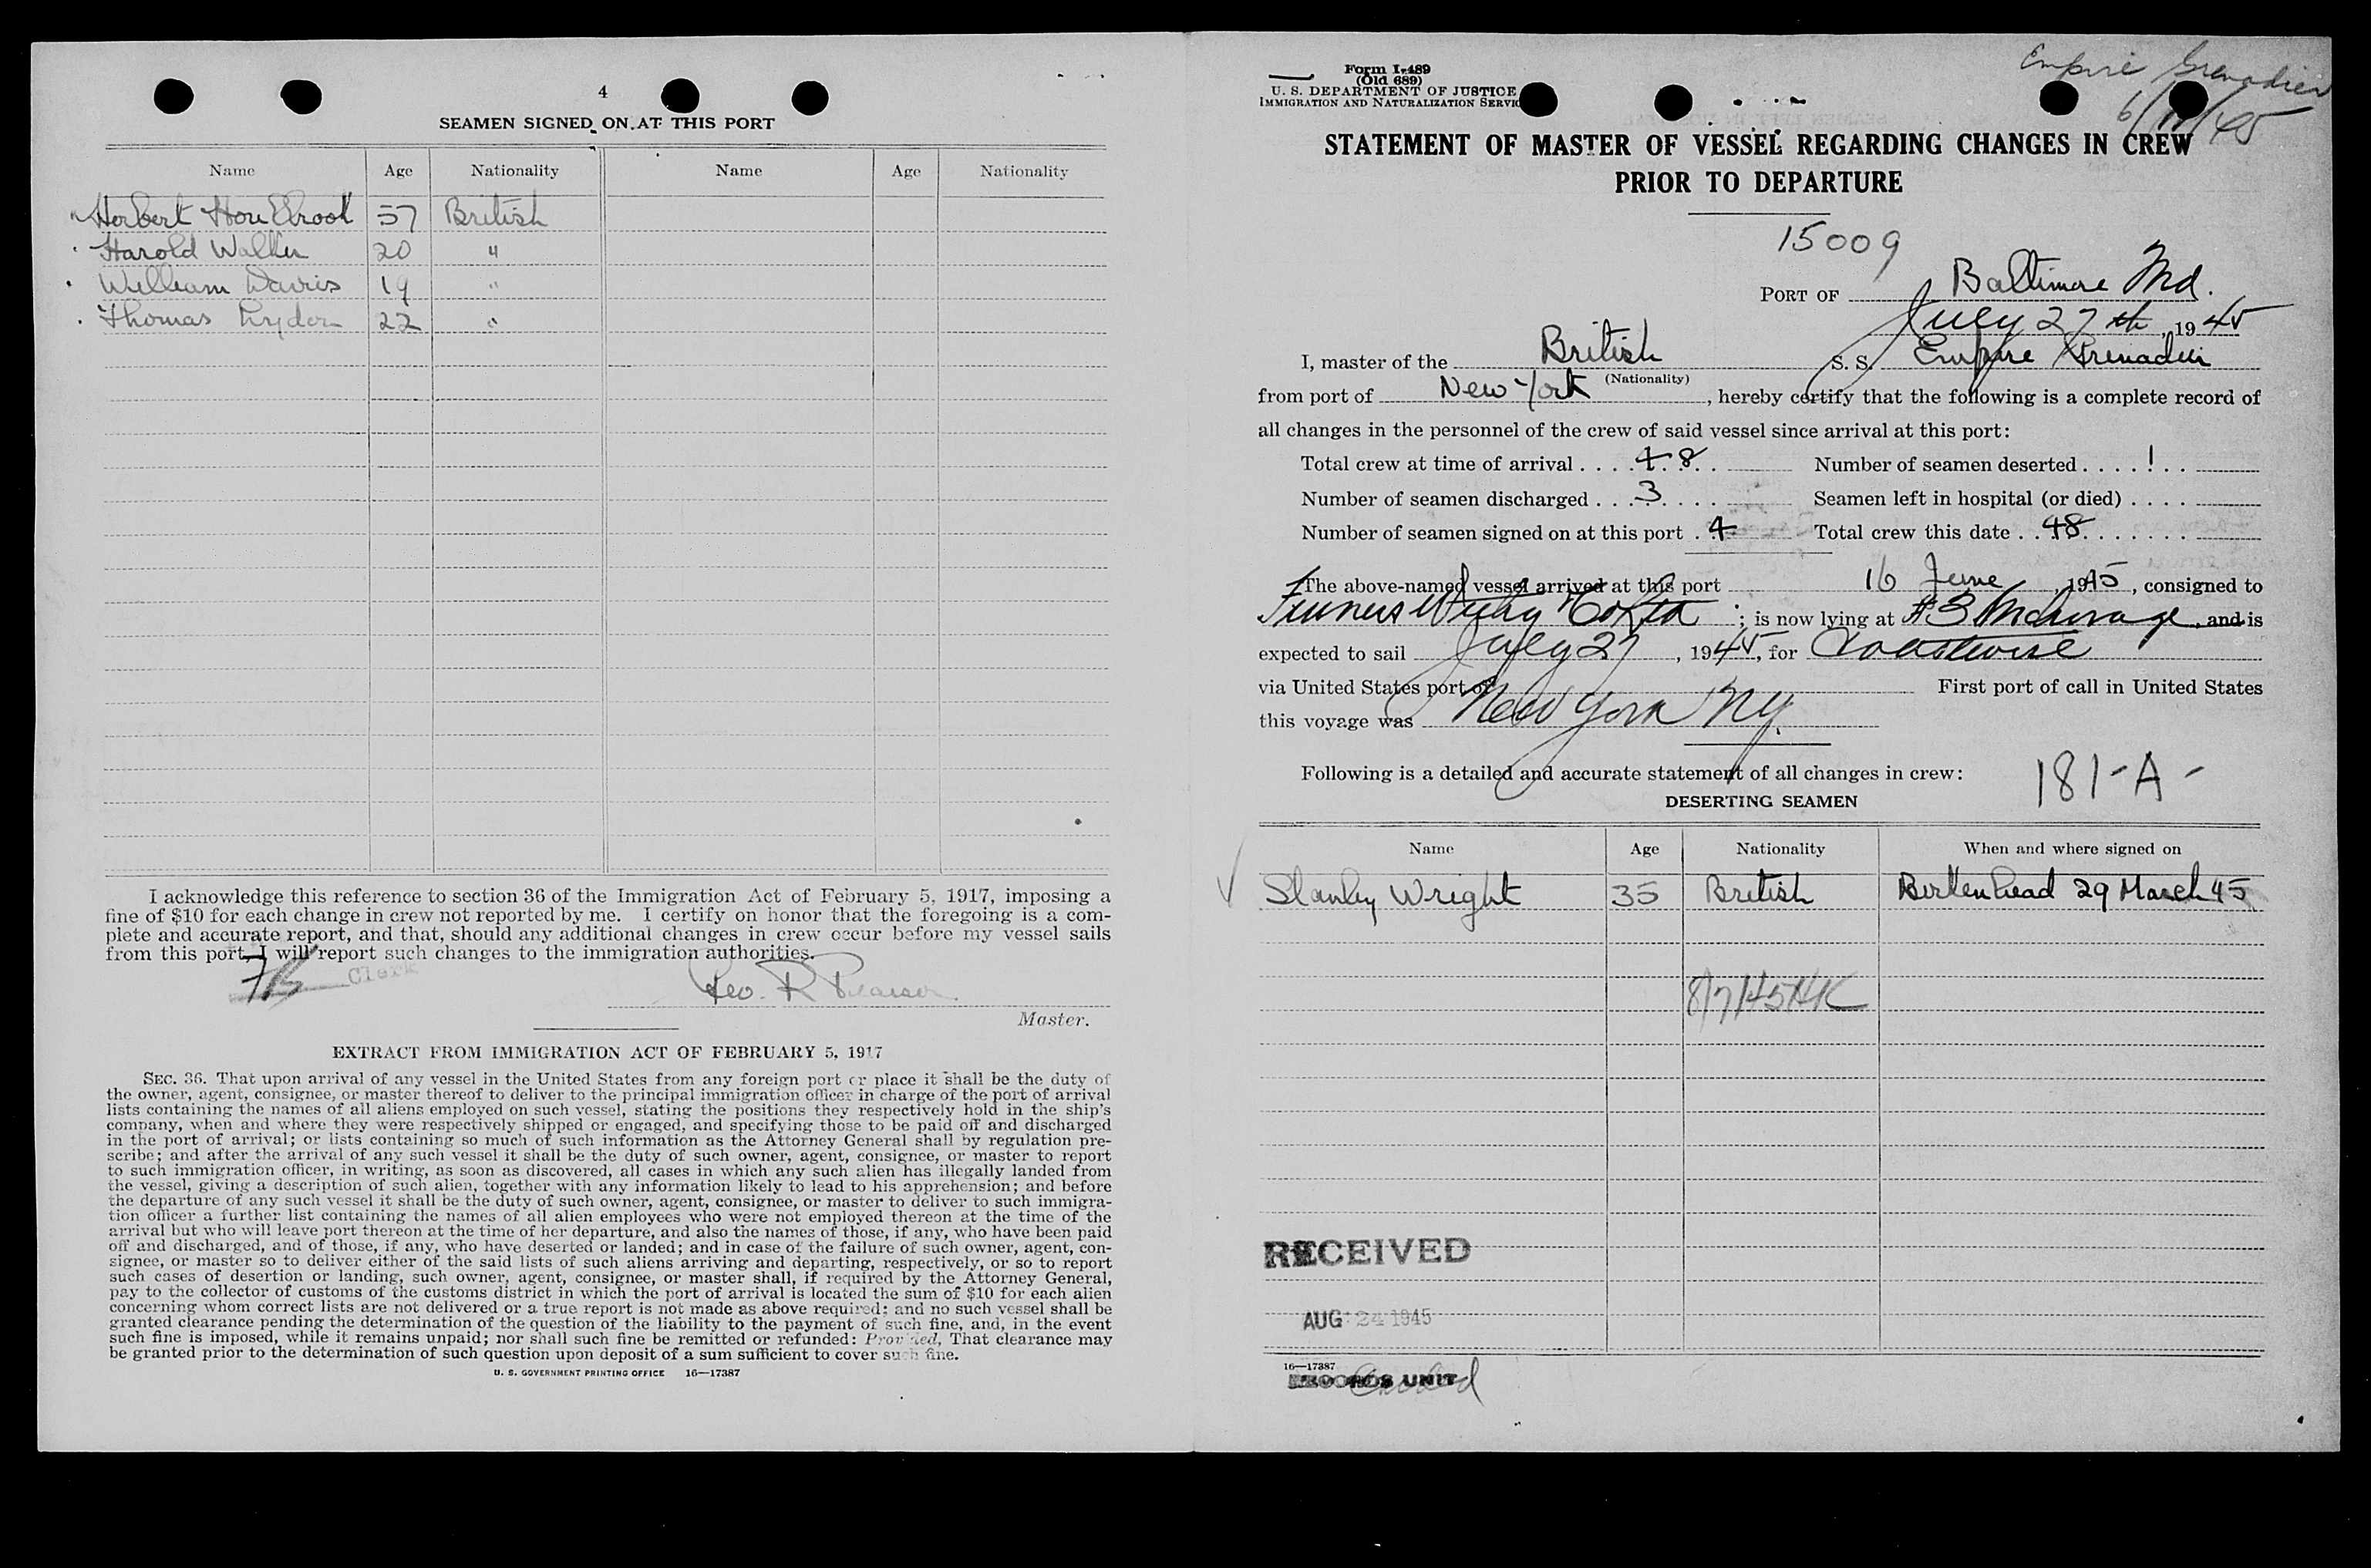 4
SEAMEN SIGNED ON AT THIS PORT
Name Age Nationality Name Age Nationality
Herbert 57 British
Harold Walker 20 "
William Davies 19 "
Thomas Ryder 22 "
I acknowledge this reference to section 36 of the Immigration Act of February 5, 1917, imposing a
fine of $10 for each change in crew not reported by me. I certify on honor that the foregoing is a com-
plete and accurate report, and that, should any additional changes in crew occur before my vessel sails
from this port, I will report such changes to the immigration authorities.
Clerk
Geo. R. Pearson
Master.
EXTRACT FROM IMMIGRATION ACT OF FEBRUARY 5, 1917
SEC. 36. That upon arrival of any vessel in the United States from any foreign port or place it shall be the duty of
the owner, agent, consignee, or master thereof to deliver to the principal immigration officer in charge of the port of arrival
lists containing the names of all aliens employed on such vessel, stating the positions they respectively hold in the ship's
company, when and where they were respectively shipped or engaged, and specifying those to be paid off and discharged
in the port of arrival; or lists containing so much of such information as the Attorney General shall by regulation pre-
scribe; and after the arrival of any such vessel it shall be the duty of such owner, agent, consignee, or master to report
to such immigration officer, in writing, as soon as discovered, all cases in which any such alien has illegally landed from
the vessel, giving a description of such alien, together with any information likely to lead to his apprehension; and before
the departure of any such vessel it shall be the duty of such owner, agent, consignee, or master to deliver to such immigra-
tion officer a further list containing the names of all alien employees who were not employed thereon at the time of the
arrival but who will leave port thereon at the time of her departure, and also the names of those, if any, who have been paid
off and discharged, and of those, if any, who have deserted or landed; and in case of the failure of such owner, agent, con-
signee, or master so to deliver either of the said lists of such aliens arriving and departing, respectively, or so to report
such cases of desertion or landing, such owner, agent, consignee, or master shall, if required by the Attorney General,
pay to the collector of customs of the customs district in which the port of arrival is located the sum of $10 for each alien
concerning whom correct lists are not delivered or a true report is not made as above required; and no such vessel shall be
granted clearance pending the determination of the question of the liability to the payment of such fine, and, in the event
such fine is imposed, while it remains unpaid; nor shall such fine be remitted or refunded: Provided, That clearance may
be granted prior to the determination of such question upon deposit of a sum sufficient to cover such fine.
U. S. GOVERNMENT PRINTING OFFICE 16—17387
Empire Grenadier
Form I-489
(Old 689)
U. S. DEPARTMENT OF JUSTICE
IMMIGRATION AND NATURALIZATION SERVIC
STATEMENT OF MASTER OF VESSEL REGARDING CHANGES IN CREW
PRIOR TO DEPARTURE
15009
PORT OF Baltimore Md.
July 27th, 1945
I, master of the British S. S. Empire Grenadier
(Nationality)
from port of New York, hereby certify that the following is a complete record of
all changes in the personnel of the crew of said vessel since arrival at this port:
Total crew at time of arrival . . . . 48 . . Number of seamen deserted . . . . 1 . .
Number of seamen discharged . . . 3 . . . . Seamen left in hospital (or died) . . . .
Number of seamen signed on at this port . 4 Total crew this date . . 48 . . . . . . .
The above-named vessel arrived at this port 16 June, 1945, consigned to
; is now lying at #3 Anchorage, and is
expected to sail July 27, 1945, for Coastwise
via United States port of First port of call in United States
this voyage was New York NY.
Following is a detailed and accurate statement of all changes in crew:
181-A-
DESERTING SEAMEN
Name Age Nationality When and where signed on
Stanley Wright 35 British Birkenhead 29 March 45
8/7/45 HK
RECEIVED
AUG 24 1945
16—17387
RECORDS UNIT